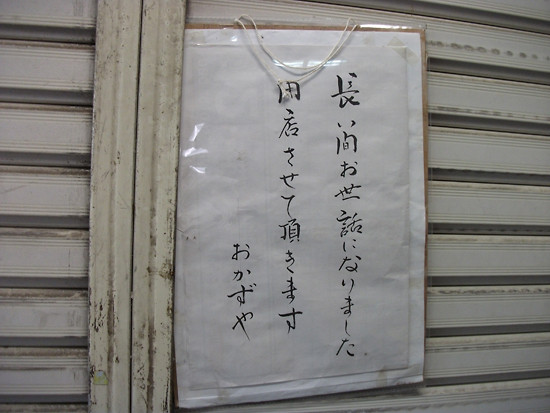 長い間お世話になりました
閉店させて頂きます
おかずや